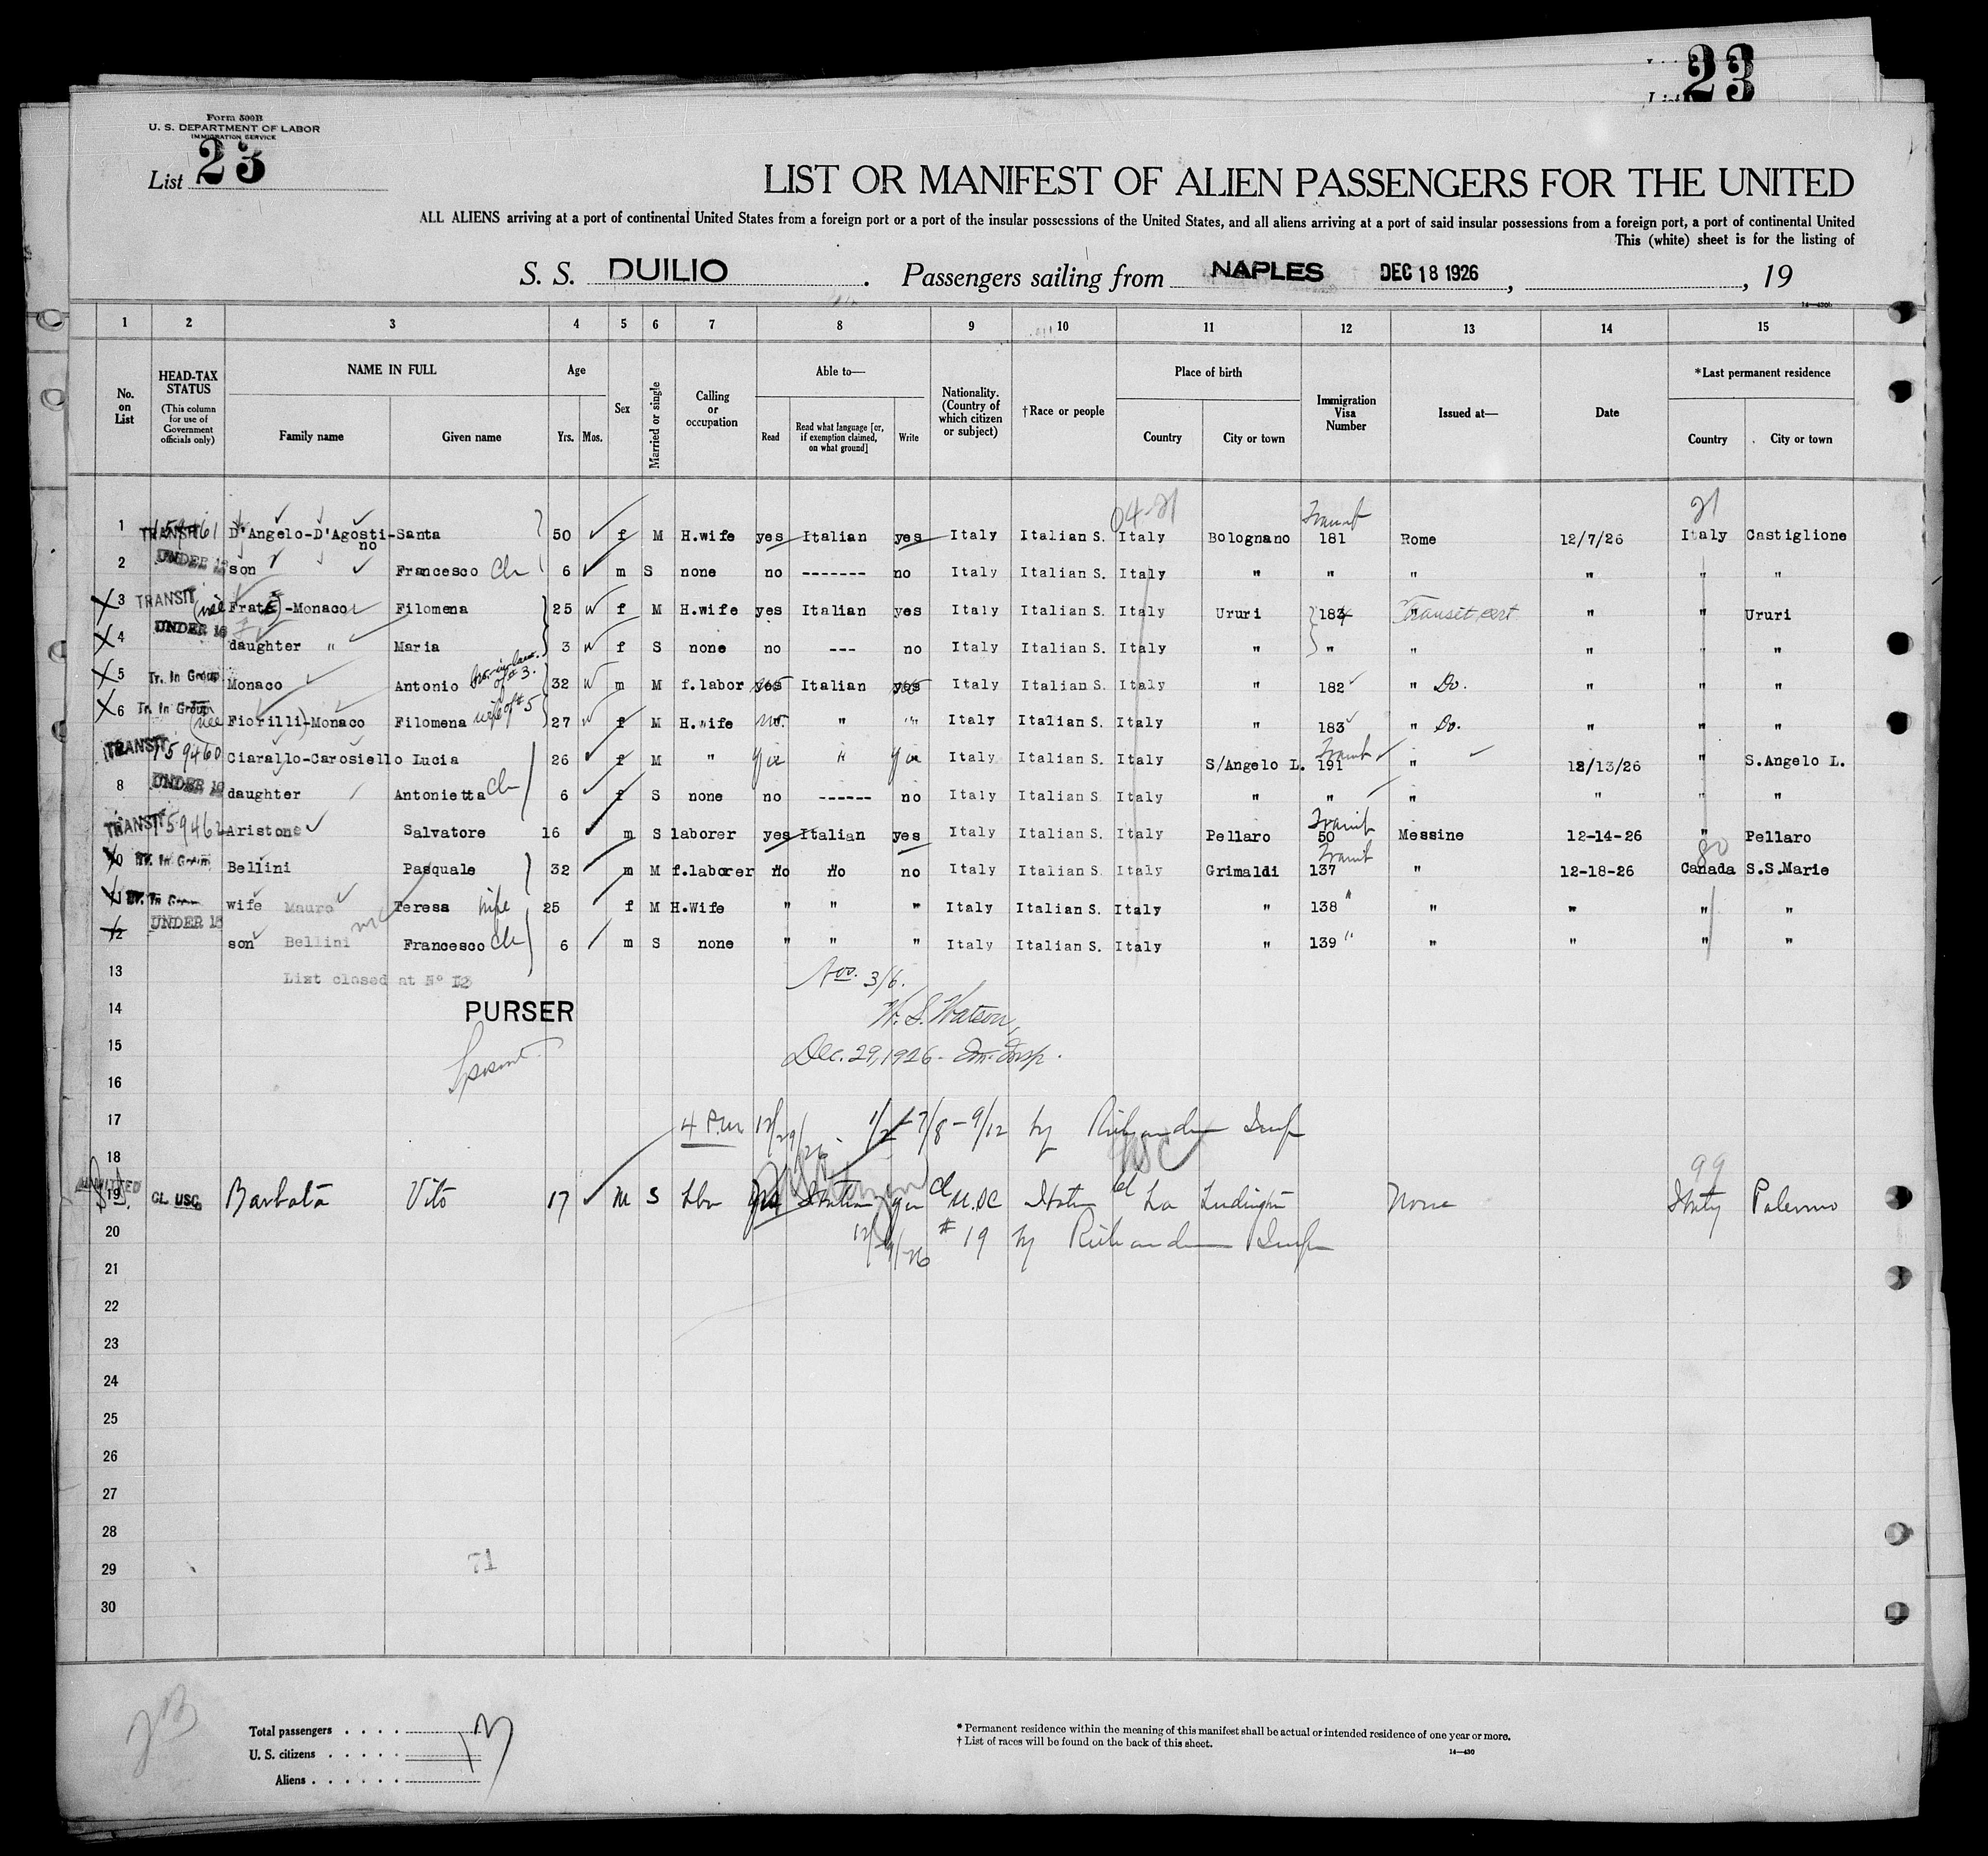 23
Form 500B
U. S. DEPARTMENT OF LABOR
IMMIGRATION SERVICE
List 23
LIST OR MANIFEST OF ALIEN PASSENGERS FOR THE UNITED
ALL ALIENS arriving at a port of continental United States from a foreign port or a port of the insular possessions of the United States, and all aliens arriving at a port of said insular possessions from a foreign port, a port of continental United
This (white) sheet is for the listing of
S. S. DUILIO. Passengers sailing from NAPLES DEC 18 1926, , 19
14—430b
1 2 3 4 5 6 7 8 9 10 11 12 13 14 15
No. on List
HEAD-TAX STATUS
(This column for use of Government officials only)
NAME IN FULL
Family name
Given name
Age
Yrs.
Mos.
Sex
Married or single
Calling or occupation
Able to—
Read
Read what language [or, if exemption claimed, on what ground]
Write
Nationality. (Country of which citizen or subject)
†Race or people
Place of birth
Country
City or town
Immigration Visa Number
Issued at—
Date
*Last permanent residence
Country
City or town
04-21 Transit 21
1 TRANSIT D'Angelo-D'Agosti-no Santa 50 f M H.wife yes Italian yes Italy Italian S. Italy Bolognano 181 Rome 12/7/26 Italy Castiglione
2 UNDER son Francesco Ch 6 m S none no ------- no Italy Italian S. Italy " " " " " "
3 TRANSIT (nee Frate)-Monaco Filomena 25 f M H.wife yes Italian yes Italy Italian S. Italy Ururi 184 " Transit cert " " Ururi
4 UNDER 16 daughter " Maria 3 f S none no --- no Italy Italian S. Italy " " " " "
5 Tr. In Group Monaco Antonio bro-in-law of #3. 32 m M f.labor yes Italian yes Italy Italian S. Italy " 182 " Do. " " "
6 Tr. In Group (nee Fiorilli)-Monaco Filomena wife of #5 27 f M H.wife no " " Italy Italian S. Italy " 183 " Do. " " "
TRANSIT 159460 Ciarallo-Carosiello Lucia 26 f M " yes " yes Italy Italian S. Italy S/Angelo L. Transit 191 " 12/13/26 " S.Angelo L.
8 UNDER daughter Antonietta Ch 6 f S none no ------ no Italy Italian S. Italy " " " " " "
TRANSIT 159462 Aristone Salvatore 16 m S laborer yes Italian yes Italy Italian S. Italy Pellaro Transit 50 Messine 12-14-26 " Pellaro
10 Tr. In Group Bellini Pasquale 32 m M f.laborer No No no Italy Italian S. Italy Grimaldi Transit 137 " 12-18-26 80 Canada S.S.Marie
11 Tr. In Group wife Mauro Teresa wife 25 f M H.Wife " " " Italy Italian S. Italy " 138 " " " " "
12 UNDER son Bellini Francesco Ch 6 m S none " " " Italy Italian S. Italy " 139 " " " " "
13 List closed at N° 12 Nos. 3/6.
14 PURSER W. S. Watson,
15 Dec. 29, 1926 - Im. Insp.
16
17 4 P.m 12/29/26 1/2 - 7/8 - 9/12 by Richardson Insp
18 USC 99
ADMITTED 19 CL. USC. Barbata Vito 17 m S Lbr yes Italian yes Cl U.SC Cl La Italy Palermo None
20 12/29/26 #19 by Richardson Insp
21
22
23
24
25
26
27
28
29 71
30
Total passengers . . . . 13
U. S. citizens . . . . .
Aliens . . . . . .
* Permanent residence within the meaning of this manifest shall be actual or intended residence of one year or more.
† List of races will be found on the back of this sheet.
14—430